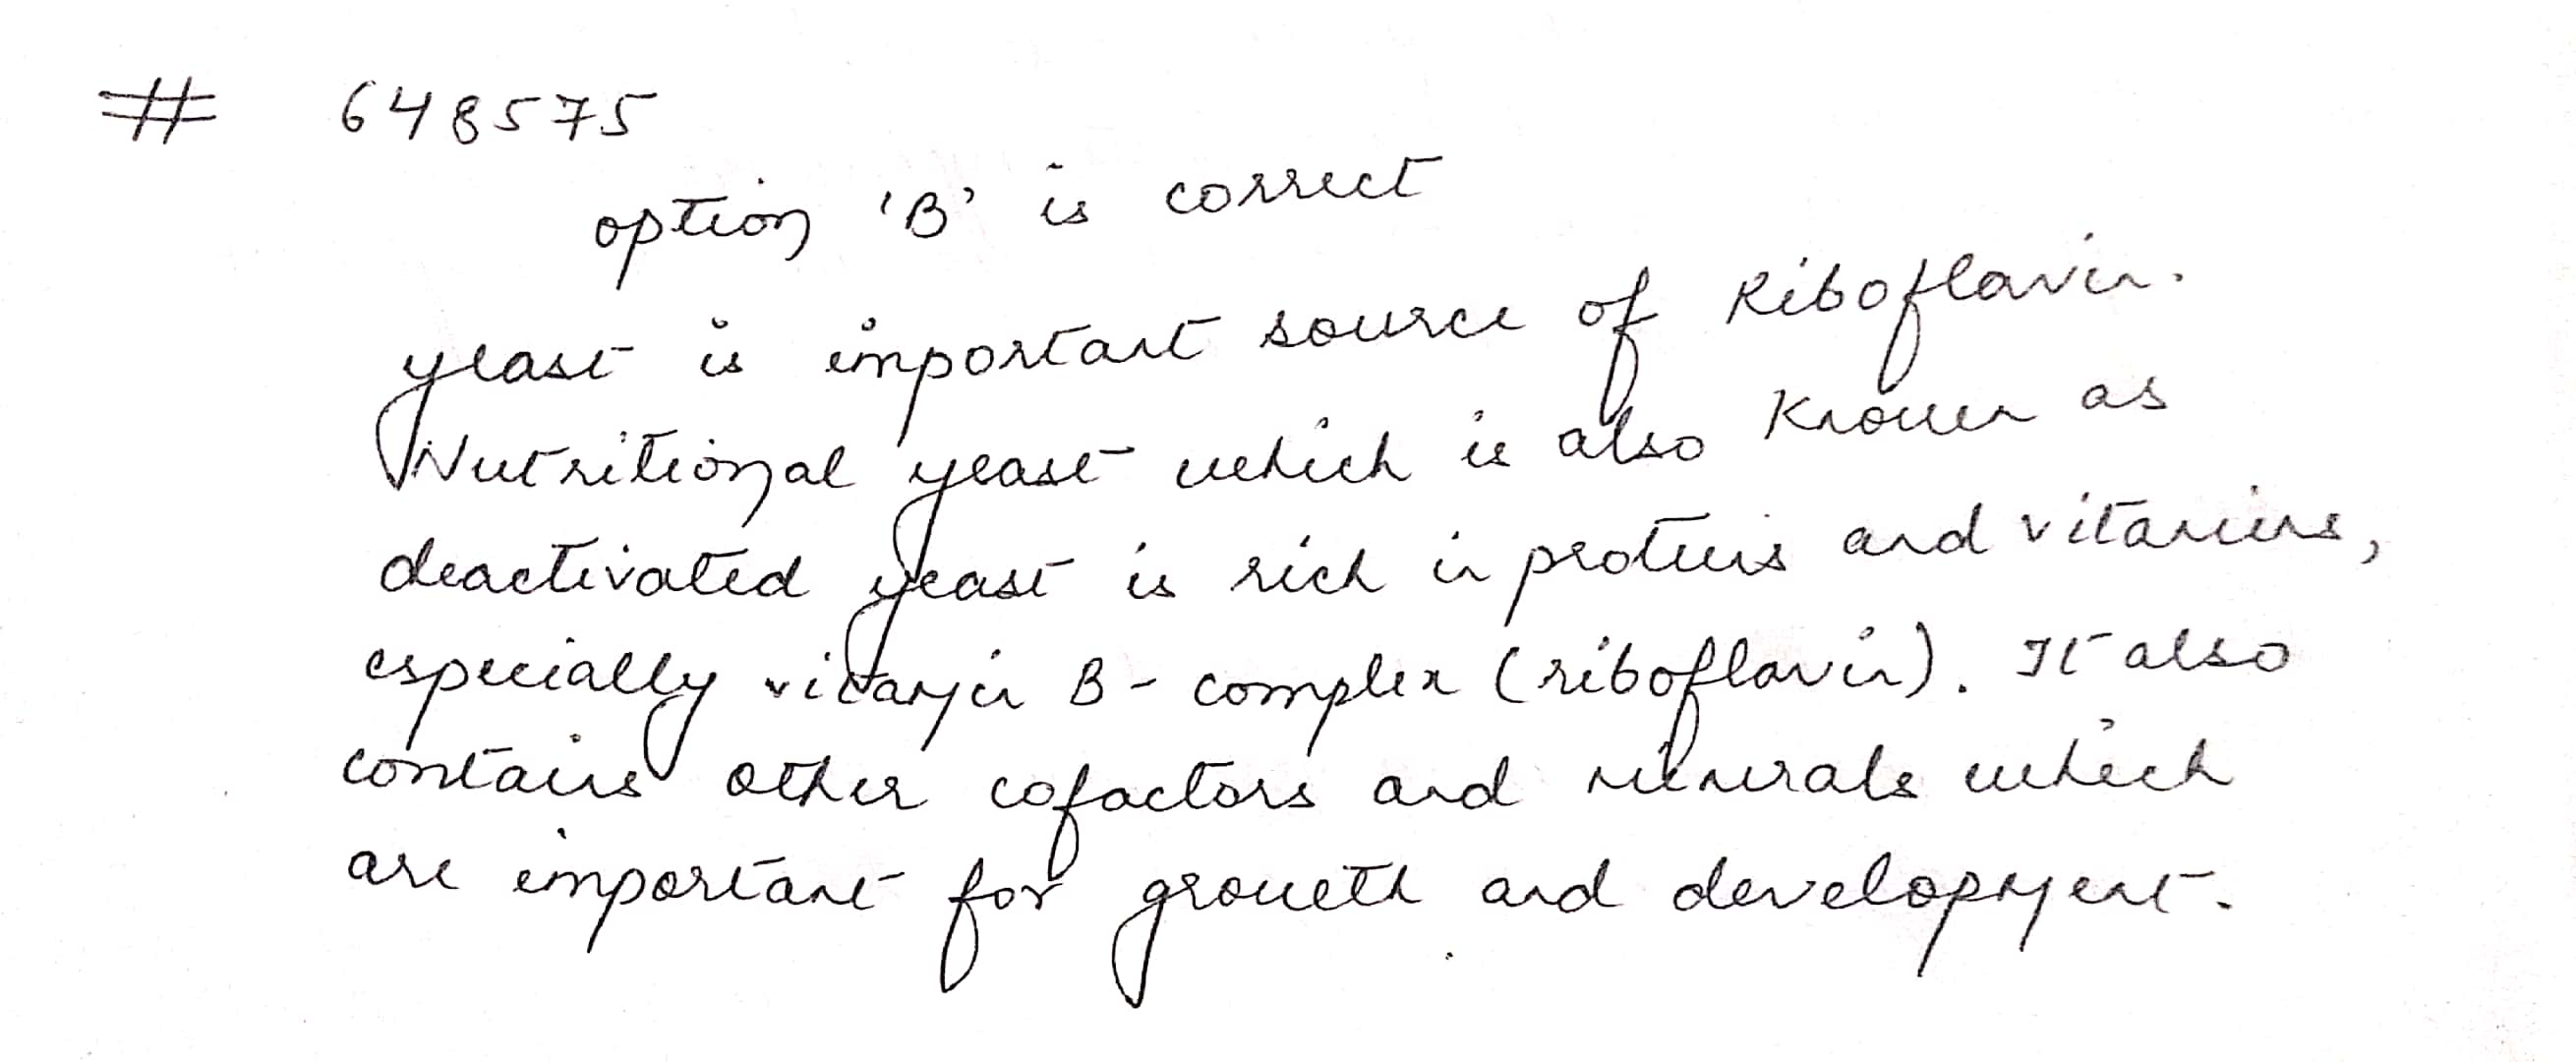 # 648575
option 'B' is correct
yeast is important source of Riboflavin.
Nutritional yeast which is also known as
deactivated yeast is rich in proteins and vitamins,
especially vitamin B-complex (riboflavin). It also
contains other cofactors and minerals which
are important for growth and development.